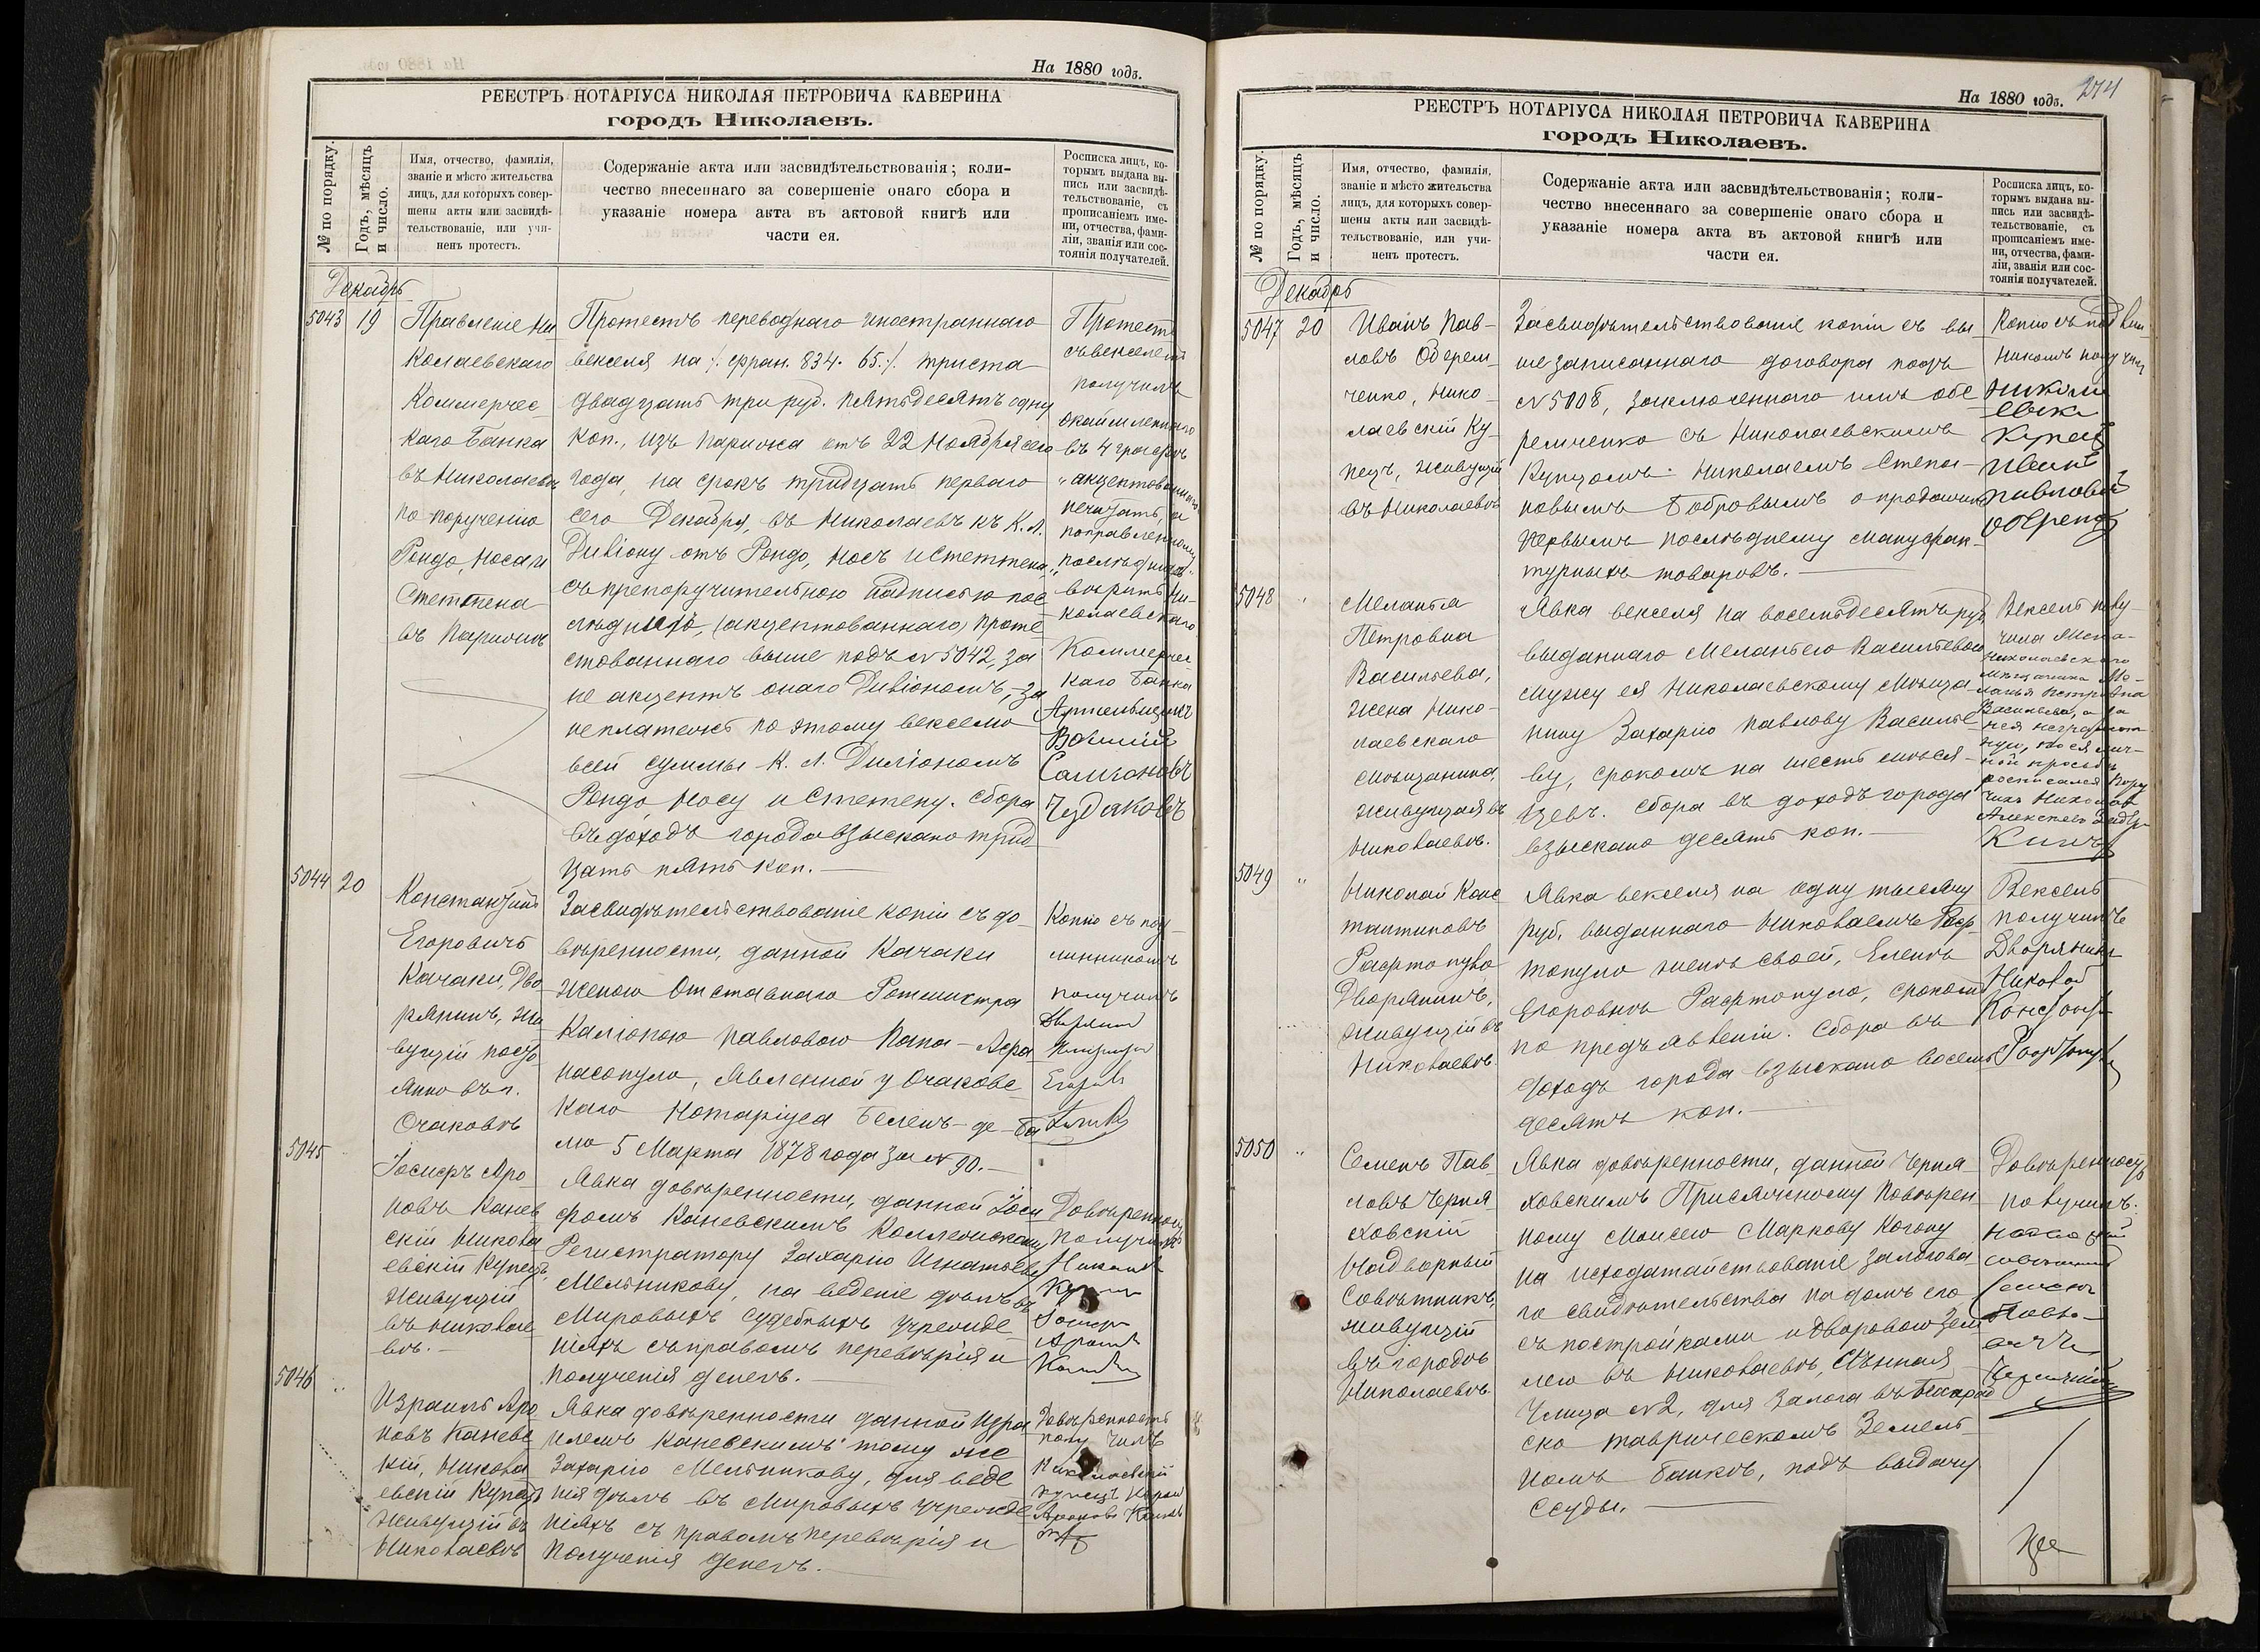 На 1880 годъ.
РЕЕСТРЪ НОТАРІУСА НИКОЛАЯ ПЕТРОВИЧА КАВЕРИНА
городъ Николаевъ.
№ по порядку.
Годъ, мѣсяцъ
и число.
Имя, отчество, фамилія,
званіе и мѣсто жительства
лицъ, для которыхъ совер-
шены акты или засвидѣ-
тельствованіе, или учи-
ненъ протестъ.
Содержаніе акта или засвидѣтельствованія; коли-
чество внесеннаго за совершеніе онаго сбора и
указаніе номера акта въ актовой книгѣ или
части ея.
Росписка лицъ, ко-
торымъ выдана вы-
пись или засвидѣ-
тельствованіе, съ
прописаніемъ име-
ни, отчества, фами-
ліи, званія или сос-
тоянія получателей.
Декабрь
5043 19
Правленіе Ни
колаевскаго
Коммерчес
каго Банка
въ Николаевѣ
по порученію
Рондо, Носа и
Стеттена
въ Парижѣ
Протестъ переводнаго иностраннаго
векселя на ./. фран. 834. 65 ./. триста
двадцать три руб. пятьдесятъ одну
коп., изъ Парижа отъ 22 Ноября сего
года, на срокъ тридцать перваго
сего Декабря, въ Николаевъ къ К. Л.
Дивіону отъ Рондо, Носъ и Стеттена,
съ препоручительною надписью пос
лѣднихъ, (акцептованнаго) проте
стованнаго выше подъ № 5042, за
не акцептъ онаго Дивіономъ, за
неплатежъ по этому векселю
всей суммы К. Л. Дивіономъ
Рондо, Носу и Стетену. Сбора
въ доходъ города взыскано трид
цать пять коп.
Протестъ
съ векселемъ
получилъ
въ 4 графѣ
"акцептованнаго
печатать, а
поправленному
"послѣднихъ"
вѣрить Ни-
колаевскаго
Коммерчес
каго Банка
Артельщикъ
Чудаковъ
5044 20
Константинъ
Егоровичъ
Качаки, Дво
рянинъ, жи
вущій посто
янно въ г.
Очаковѣ
Засвидѣтельствованіе копіи съ до
вѣренности, данной Качаки
женою Отставнаго Ротмистра
Каліопою Павловою Папа-Аѳа
насопуло, явленной у Очаковс
каго Нотаріуса Белемъ-де-Ба
лю 5 Марта 1878 года за № 90.
Копію съ под
линникомъ
получилъ
5045
Іосифъ Аро
новъ Канев
скій Никола
евскій Купецъ,
живущій
въ Николае
вѣ.
Явка довѣренности, данной Іоси
фомъ Каневскимъ Коллежскому
Регистратору Захарію Игнатьеву
Мельникову, на веденіе дѣлъ въ
Мировыхъ судебныхъ учрежде
ніяхъ съ правомъ перевѣрія и
полученія денегъ.
Довѣренность
получилъ
5046 "
Израиль Аро
новъ Каневс
кій, Никола
евскій Купецъ
живущій въ
Николаевѣ
Явка довѣренности данной Изра
илемъ Каневскимъ тому же
Захарію Мельникову, для веде
нія дѣлъ въ Мировыхъ учрежде
ніяхъ съ правомъ перевѣрія и
полученія денегъ.
Довѣренность
получилъ
Николаевскій
купецъ
На 1880 годъ.
274
РЕЕСТРЪ НОТАРІУСА НИКОЛАЯ ПЕТРОВИЧА КАВЕРИНА
городъ Николаевъ.
№ по порядку.
Годъ, мѣсяцъ
и число.
Имя, отчество, фамилія,
званіе и мѣсто жительства
лицъ, для которыхъ совер-
шены акты или засвидѣ-
тельствованіе, или учи-
ненъ протестъ.
Содержаніе акта или засвидѣтельствованія; коли-
чество внесеннаго за совершеніе онаго сбора и
указаніе номера акта въ актовой книгѣ или
части ея.
Росписка лицъ, ко-
торымъ выдана вы-
пись или засвидѣ-
тельствованіе, съ
прописаніемъ име-
ни, отчества, фами-
ліи, званія или сос-
тоянія получателей.
Декабрь
5047 20
Иванъ Пав-
ловъ Оберем-
ченко, Нико-
лаевскій Ку-
пецъ, живущій
въ Николаевѣ
Засвидѣтельствованіе копіи съ вы-
ше записаннаго договора подъ
№ 5008, заключеннаго имъ Обе
ремченко съ Николаевскимъ
Купцомъ Николаемъ Степа-
новымъ Бобровымъ о продажѣ
первымъ послѣднему мануфак-
турныхъ товаровъ.
5048 "
Меланья
Петровна
Васильева,
жена Нико-
лаевскаго
мѣщанина,
живущая въ
Николаевѣ.
Явка векселя на восемьдесятъ руб.
выданнаго Меланьею Васильевою
мужу ея Николаевскому мѣща-
нину Захарію Павлову Василье
ву, срокомъ на шесть мѣся-
цевъ. Сбора въ доходъ города
взыскано десять коп.
Вексель полу-
чила
Николаевскаго
мѣщанина Ме-
ланья Петровна
Васильева, а за
нея неграмот-
ную, по ея лич-
ной просьбѣ
росписался
5049 "
Николай Конс
тантиновъ
Рафтопуло
Дворянинъ,
живущій въ
Николаевѣ
Явка векселя на одну тысячу
руб. выданнаго Николаемъ Раф-
топуло женѣ своей, Еленѣ
Егоровнѣ Рафтопуло, срокомъ
по предъявленіи. Сбора въ
доходъ города взыскано восемь
десятъ коп.
Вексель
получилъ
Дворянинъ
Николай
5050 "
Семенъ Пав
ловъ Черня
ховскій
Надворный
Совѣтникъ,
живущій
въ городѣ
Николаевѣ.
Явка довѣренности, данной Черня-
ховскимъ Присяжному Повѣрен
ному Моисею Маркову Когону
на исходатайствованіе залогова-
го свидѣтельства на домъ его
съ постройками и дворовою зем
лею въ Николаевѣ, Сѣнная
Улица № 2, для залога въ Бессараб
ско таврическомъ Земель
номъ Банкѣ, подъ выдачу
ссуды.
Довѣренность
получилъ.